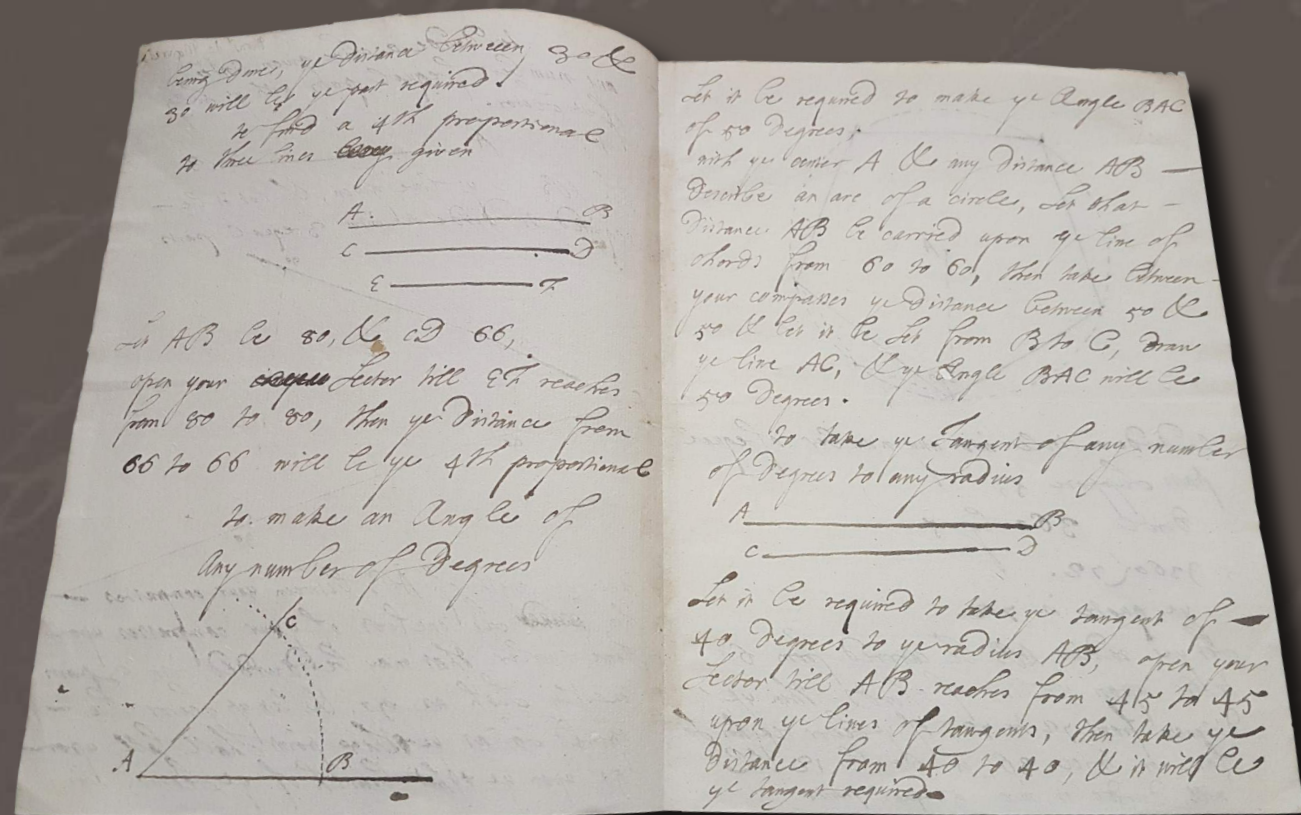 being Done, ye Distance between 30 &
30 will be ye part required.
to find a 4th proportional
to three lines given
A. B
C D
E F
Let AB be 80, & CD 66,
open your Sector till EF reaches
from 80 to 80, then ye Distance from
66 to 66 will be ye 4th proportional
to make an Angle of
Any number of Degrees
C
A B
Let it be required to make ye Angle BAC
of 50 Degrees.
with ye center A & any Distance AB
Describe an arc of a circle, Let that
Distance AB be carried upon ye line of
chords from 60 to 60, then take between
your compasses ye Distance between 50 &
50 & let it be set from B to C, Draw
ye line AC, & ye Angle BAC will be
50 Degrees.
to take ye Tangent of any number
of Degrees to any radius
A B
C D
Let it be required to take ye tangent of
40 Degrees to ye radius AB, open your
Sector till AB reaches from 45 to 45
upon ye lines of tangents, then take ye
Distance from 40 to 40, & it will be
ye tangent required